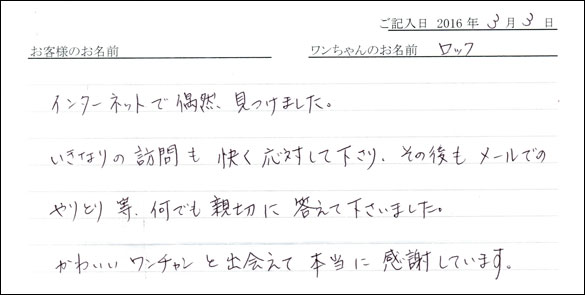 ご記入日 2016 年 3 月 3 日
お客様のお名前 ワンちゃんのお名前 ロック
インターネットで偶然、見つけました。
いきなりの訪問も 快く応対して下さり、その後も メールでの
やりとり等、何でも親切に 答えて下さいました。
かわいい ワンチャンと出会えて 本当に 感謝しています。